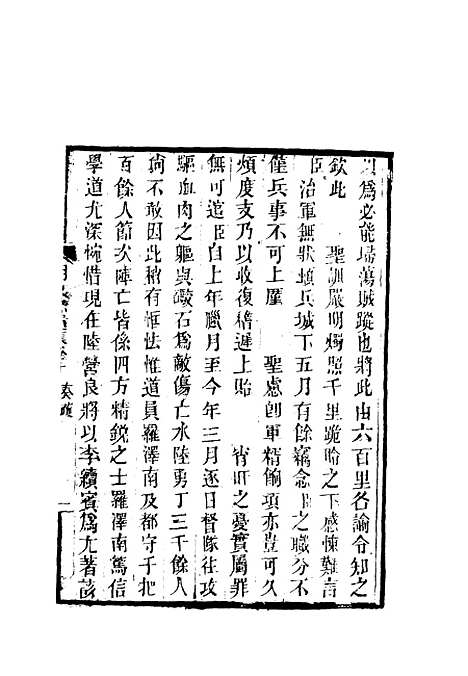 為必能埽蕩賊蹤也將此由六百里各諭令知之
欽此 聖訓嚴明燭照千里跪聆之下感悚難言
臣治軍無狀頓兵城下五月有餘竊念臣之職分不
僅兵事不可上廑 聖慮卽軍糈餉項亦豈可久
煩度支乃以收復稽遲上貽 宵旰之憂實屬罪
無可逭臣自上年臘月至今年三月逐日督隊往攻
驅血肉之軀與礮石為敵傷亡水陸勇丁三千餘人
尚不敢因此稍有恇怯惟道員羅澤南及都守千把
百餘人節次陣亡皆係四方精銳之士羅澤南篤信
學道尤深惋惜現在陸營良將以李續賓為尤著該
奏議